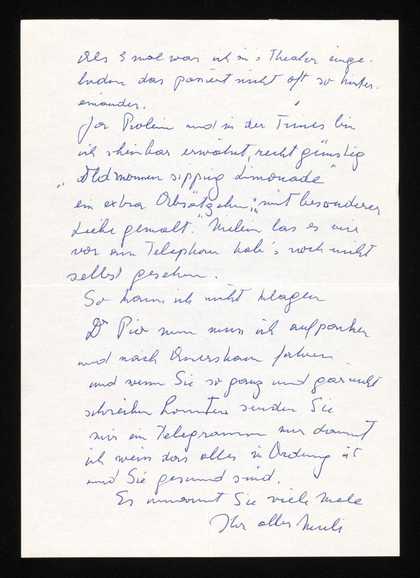 Als 3 mal war ich ins Theater einge-
laden das passiert nicht oft so hinter-
einander.
und in der Times bin
ich scheinbar erwähnt, recht günstig
"Old women sipping Limonade"
ein extra Absätzchen, "mit besonderer
Liebe gemalt." las es mir
vor am Telephon hab's noch nicht
selbst gesehen.
So kann ich nicht klagen
nun muss ich aufpacken
und nach Amersham fahren
und wenn Sie so ganz und gar nicht
schreiben könnten senden Sie
mir ein Telegramm nur damit
ich weiss dass alles in Ordnung ist
und Sie gesund sind.
Es umarmt Sie viele Male
Ihr altes